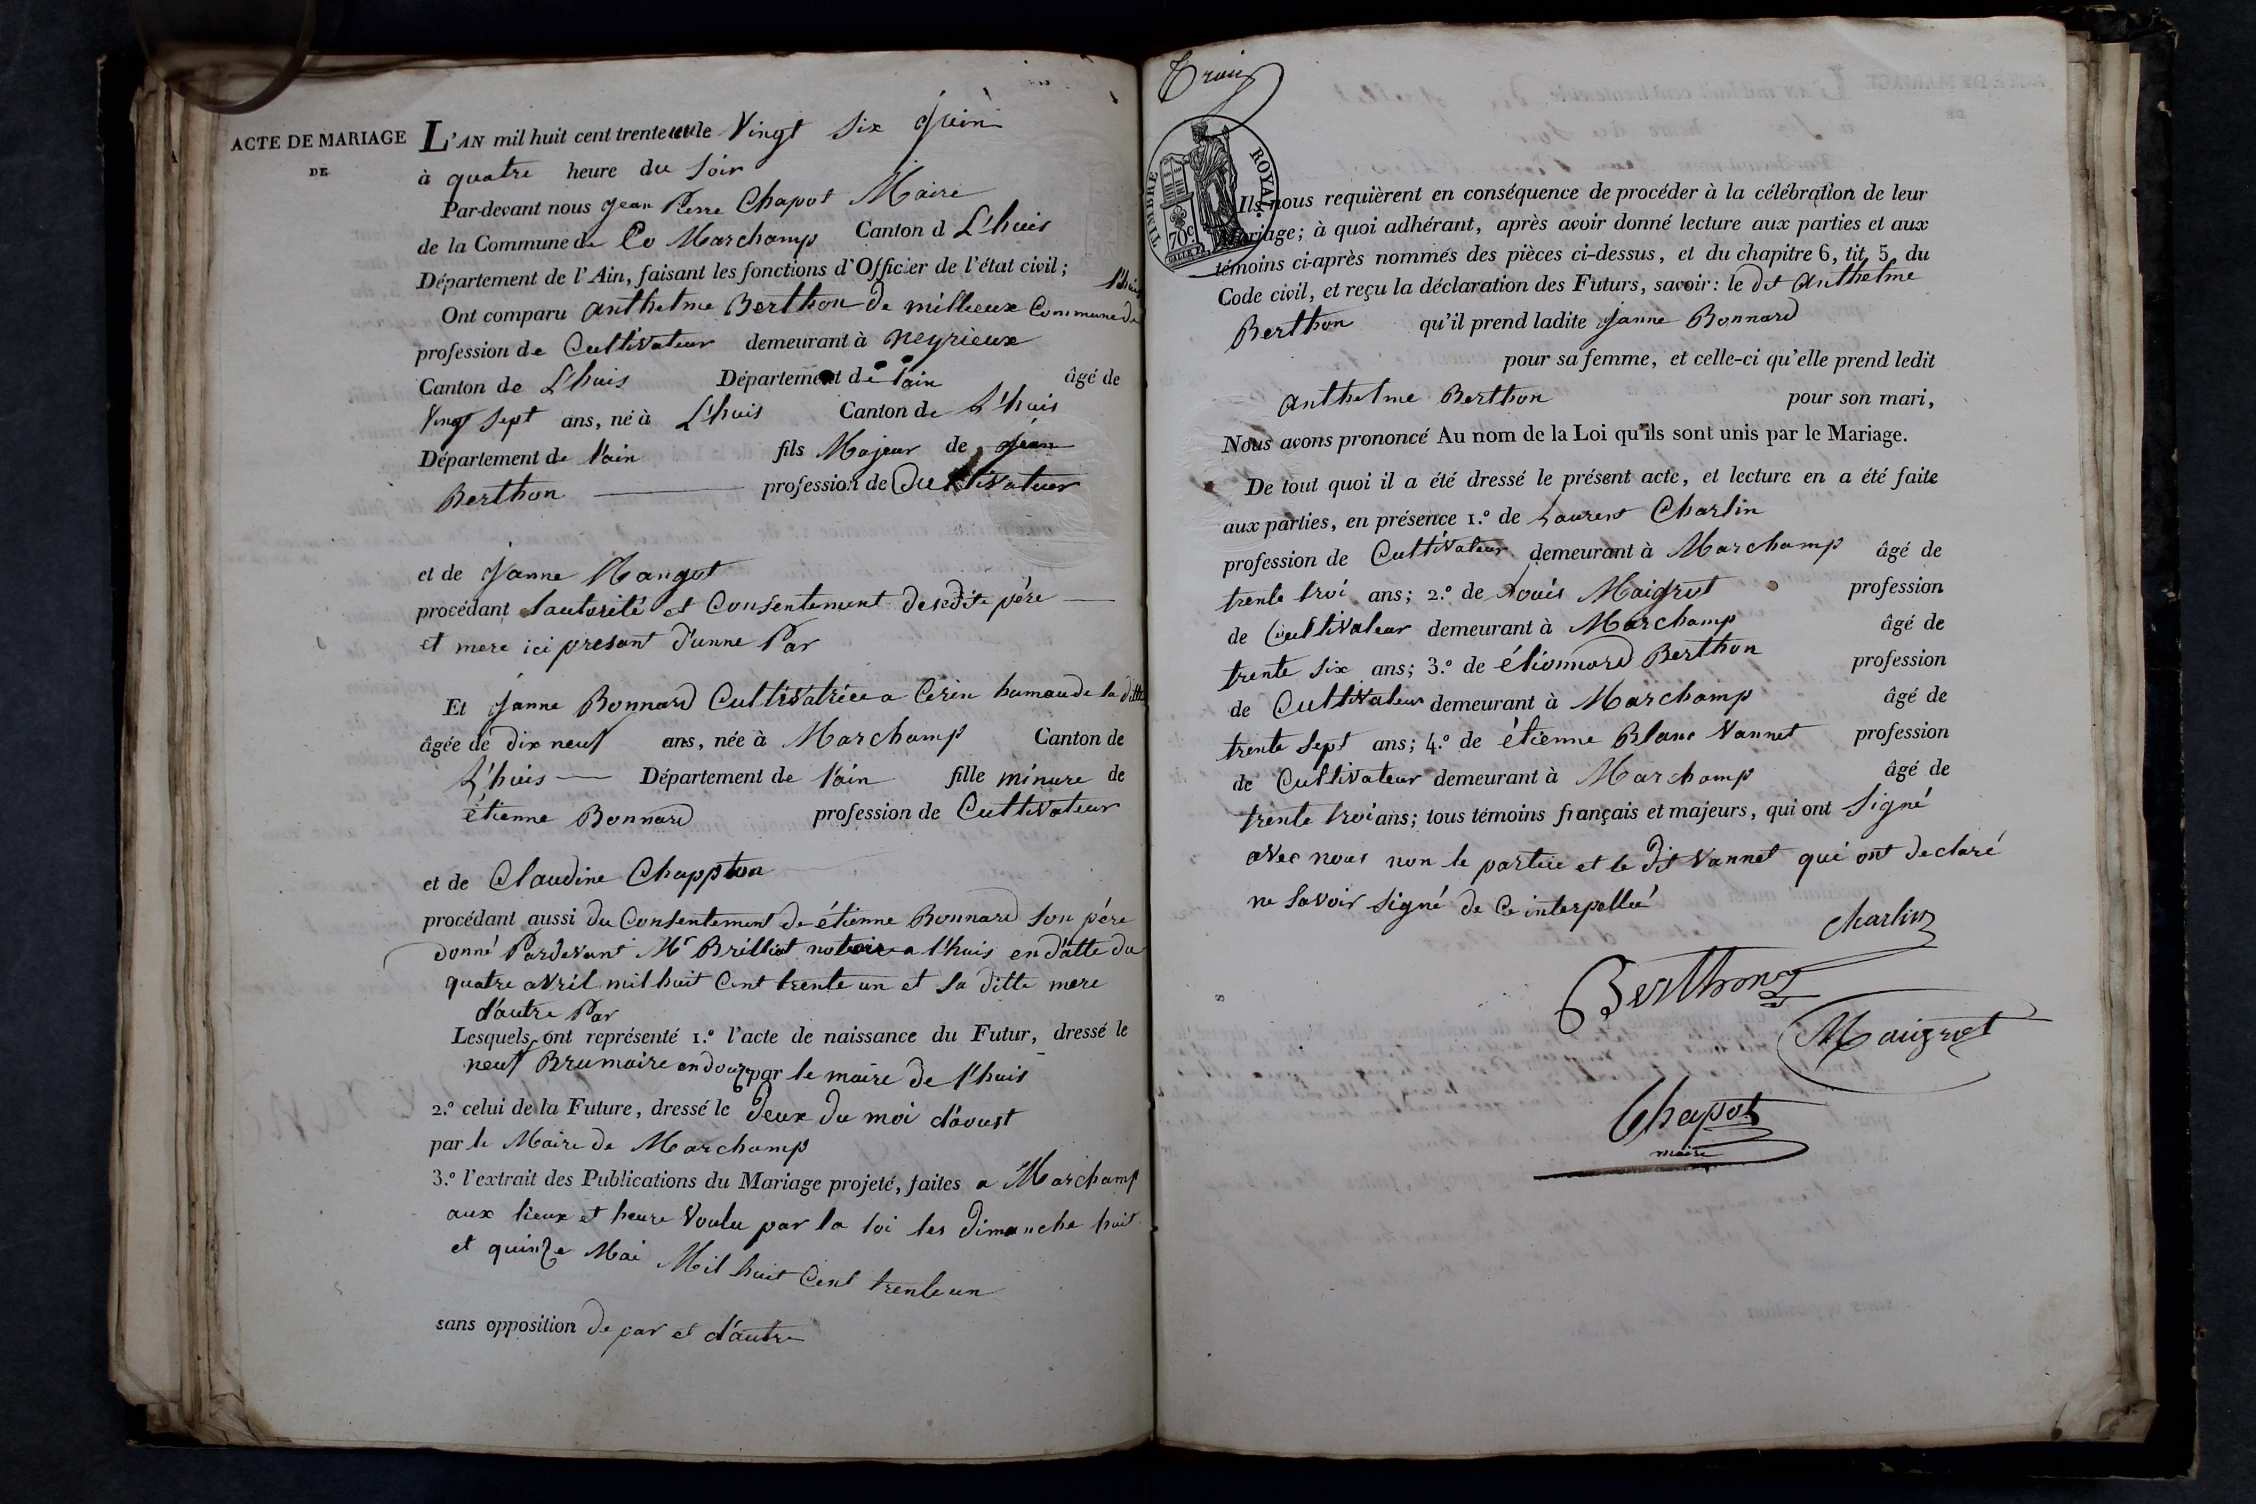 ACTE DE MARIAGE
DE
L'AN mil huit cent trente un le Vingt Six Juin
à quatre heure du Soir
Par-devant nous Jean Pierre Chapot Maire
de la Commune de Marchamp Canton d L'huis
Département de l'Ain, faisant les fonctions d'Officier de l'état civil;
Ont comparu Anthelme Berthon de millieux Commune de L'huis
profession de Cultivateur demeurant à neyrieux
Canton de L'huis Département de l'ain âgé de
Vingt Sept ans, né à L'huis Canton de L'huis
Département de l'ain fils Majeur de Jean
Berthon profession de Cultivateur
et de Janne Mangot
procédant l'autorité et Consentement de sedite père
et mere ici presant d'unne Par
Et Janne Bonnard Cultivatrice a Cerin hamau de la ditte
âgée de dix neuf ans, née à Marchamp Canton de
L'huis Département de l'ain fille minure de
étienne Bonnard profession de Cultivateur
et de Claudine Chappton
procédant aussi du Consentement de étienne Bonnard Son père
donné Pardevant Mr Brilliat notoire a l'huis en d'atte du
quatre avril mil huit Cent trente un et Sa ditte mere
d'autre Par
Lesquels ont représenté 1.º l'acte de naissance du Futur, dressé le
neuf Brumaire an douze par le maire de l'huis
2.º celui de la Future, dressé le deux du moi d'aoust
par le Maire de Marchamp
3.º l'extrait des Publications du Mariage projeté, faites a Marchamp
aux lieux et heure Voulu par la loi les dimanche huit
et quinze Mai Mil huit Cent trente un
sans opposition de par et d'autre
TIMBRE ROYAL
70c
Ils nous requièrent en conséquence de procéder à la célébration de leur
Mariage; à quoi adhérant, après avoir donné lecture aux parties et aux
témoins ci-après nommés des pièces ci-dessus, et du chapitre 6, tit 5 du
Code civil, et reçu la déclaration des Futurs, savoir: le dit Anthelme
Berthon qu'il prend ladite Janne Bonnard
pour sa femme, et celle-ci qu'elle prend ledit
Anthelme Berthon pour son mari,
Nous avons prononcé Au nom de la Loi qu'ils sont unis par le Mariage.
De tout quoi il a été dressé le présent acte, et lecture en a été faite
aux parties, en présence 1.º de Laurent Charlin
profession de Cultivateur demeurant à Marchamp âgé de
trente troi ans; 2.º de Louis Maigrot profession
de Cultivateur demeurant à Marchamp âgé de
trente Six ans; 3.º de étionnard Berthon profession
de Cultivateur demeurant à Marchamp âgé de
trente Sept ans; 4.º de étienne Blanc Vannet profession
de Cultivateur demeurant à Marchamp âgé de
trente troi ans; tous témoins français et majeurs, qui ont Signé
avec nous non le partiée et le dit Vannet qui ont declaré
ne Savoir Signé de Ce interpellée
Charlin
Berthon
Maigrot
Chapot
maire